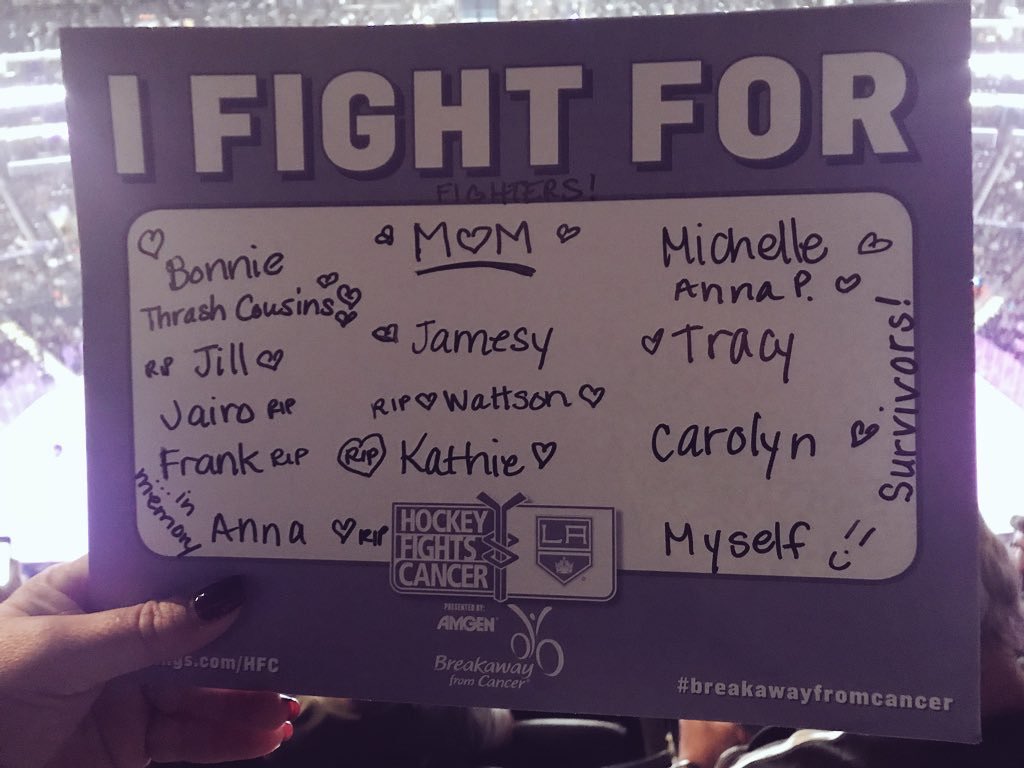 I FIGHT FOR
FIGHTERS!
Bonnie
Thrash Cousins
RIP Jill
Jairo RIP
Frank RIP
...in memory
Anna RIP
MOM
Jamesy
RIP Wattson
RIP Kathie
Michelle
Anna P.
Tracy
Carolyn
Myself
Survivors!
HOCKEY
FIGHTS
CANCER
LA
PRESENTED BY:
AMGEN
Breakaway
from Cancer
ngs.com/HFC
#breakawayfromcancer